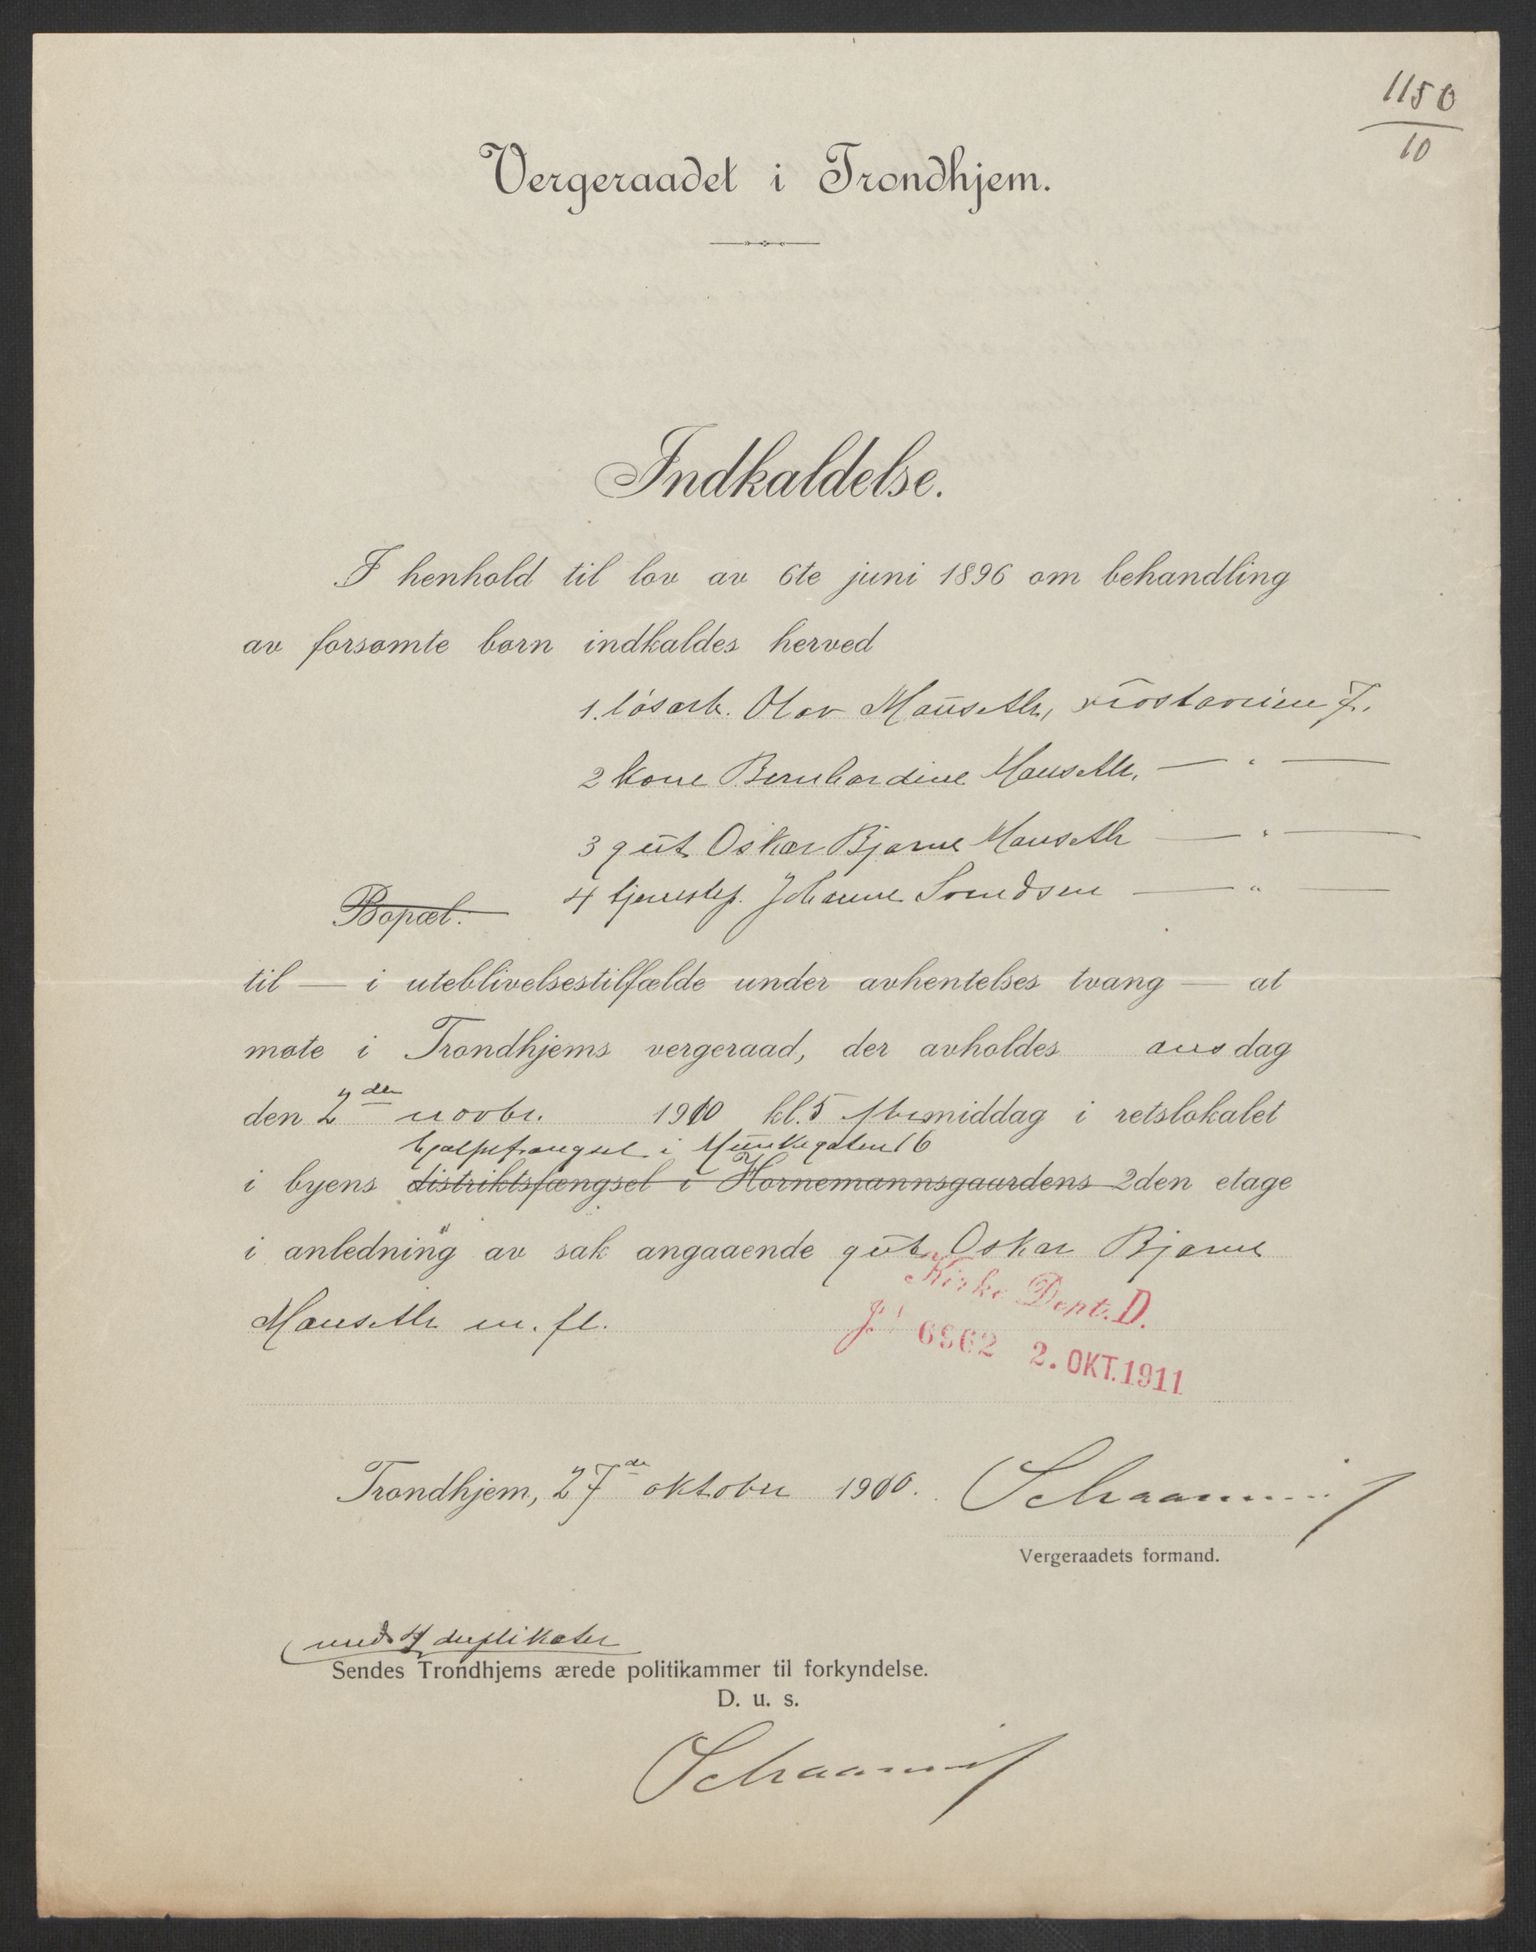 1150
10
Vergeraadet i Trondhjem.
Indkaldelse.
I henhold til lov av 6te juni 1896 om behandling
av forsømte børn indkaldes herved
1. løsarb. Olav Mauseth,
2 kone Bernhardine Mauseth, — " —
3 gut Oskar Bjarne Mauseth — " —
4 tjenestep. Johanne Svendsen — " —
Bopæl:
til — i uteblivelsestilfælde under avhentelses tvang — at
møte i Trondhjems vergeraad, der avholdes onsdag
den 2den novbr. 1910 kl. 5 eftermiddag i retslokalet
hjælpefængsel i Munkegaten 16
i byens distriktsfængsel i Hornemannsgaardens 2den etage
i anledning av sak angaaende gut Oskar Bjarne
Mauseth m. fl.
Kirke Dept. D.
J. 6962 2. OKT. 1911
Trondhjem, 27de oktober 1910. Schaanning
Vergeraadets formand.
med 4 duplikater
Sendes Trondhjems ærede politikammer til forkyndelse.
D. u. s.
Schaanning